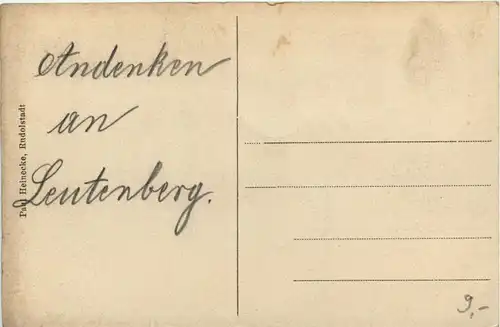 Andenken
an
Leutenberg.
Paul Heinecke, Rudolstadt
9,-